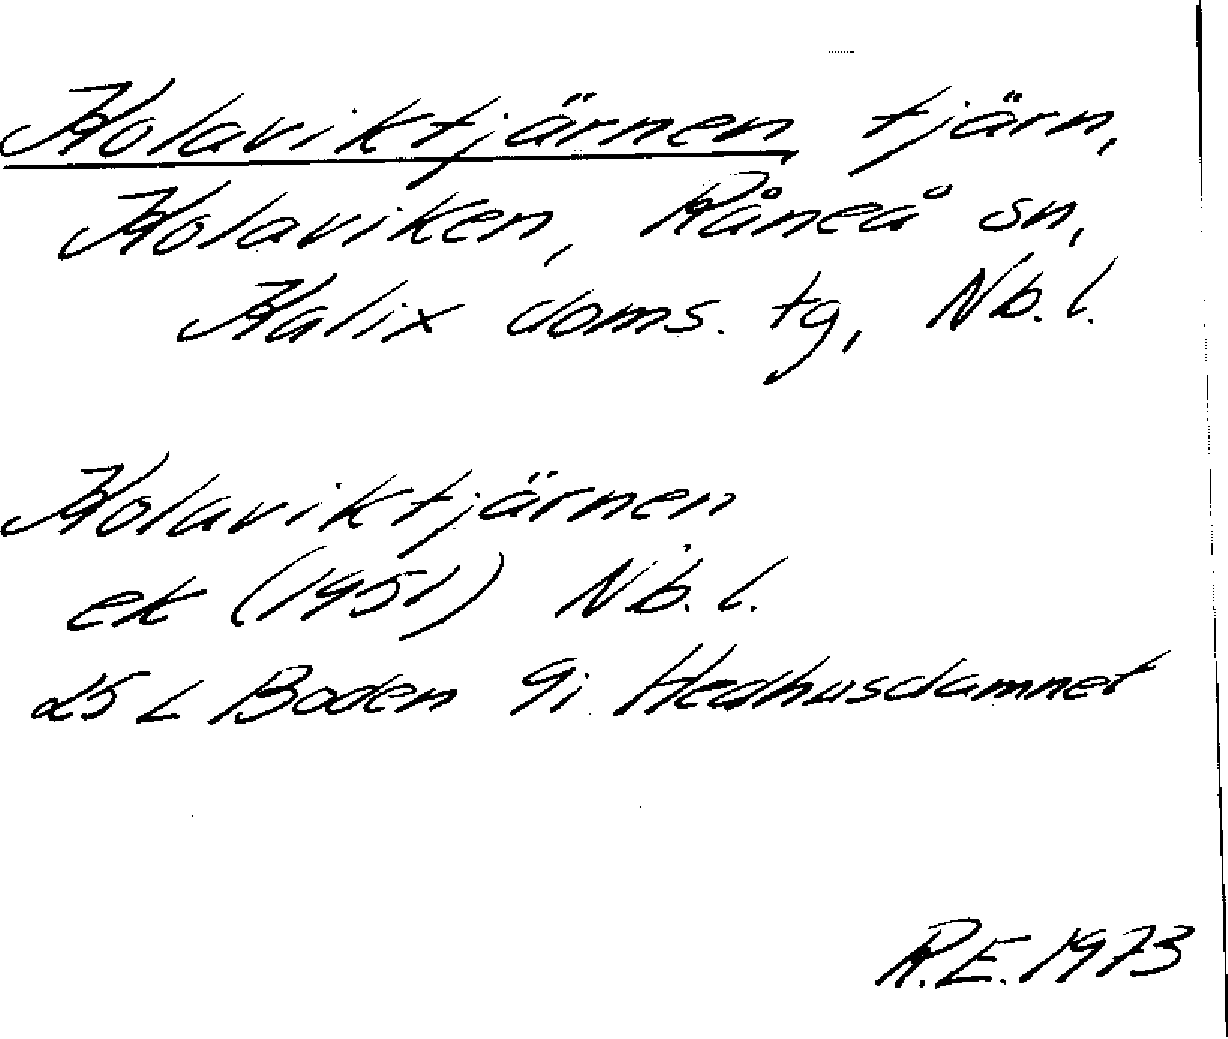 Kolaviktjärnen, tjärn,
Kolaviken, Råneå sn,
Kalix doms. tg, Nb. l.
Kolaviktjärnen
ek (1951) Nb. l.
25 L Boden 9i Hedhusdamnet
R.E. 1973